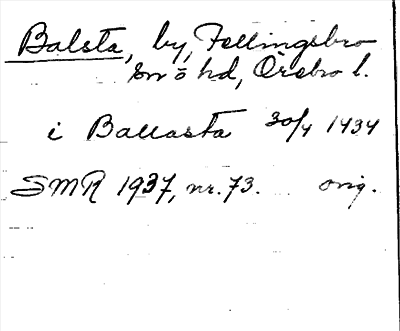 Balsta, by, Fellingsbro
sn ö hd, Örebro l.
i Ballasta 30/4 1434
SMR 1937, nr. 73. orig.